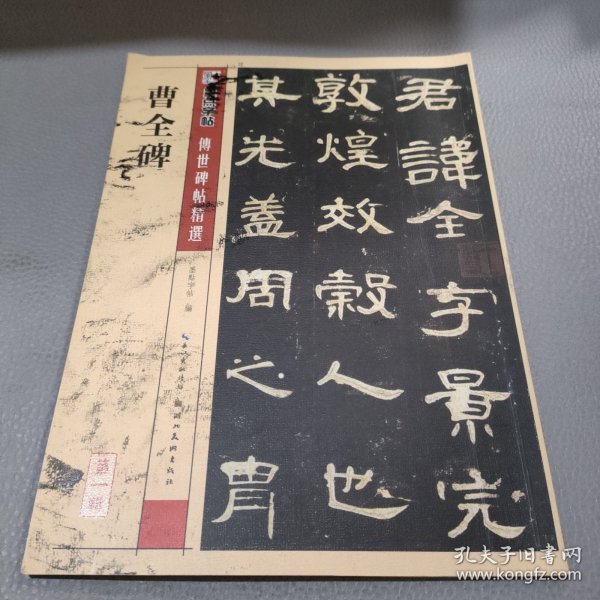 君諱全字景完
敦煌效穀人也
其先蓋周之胄
字帖
傳世碑帖精選
墨點字帖 編
曹全碑
長江出版傳媒
湖北美術出版社
第一輯
孔夫子旧书网
www.kongfz.com